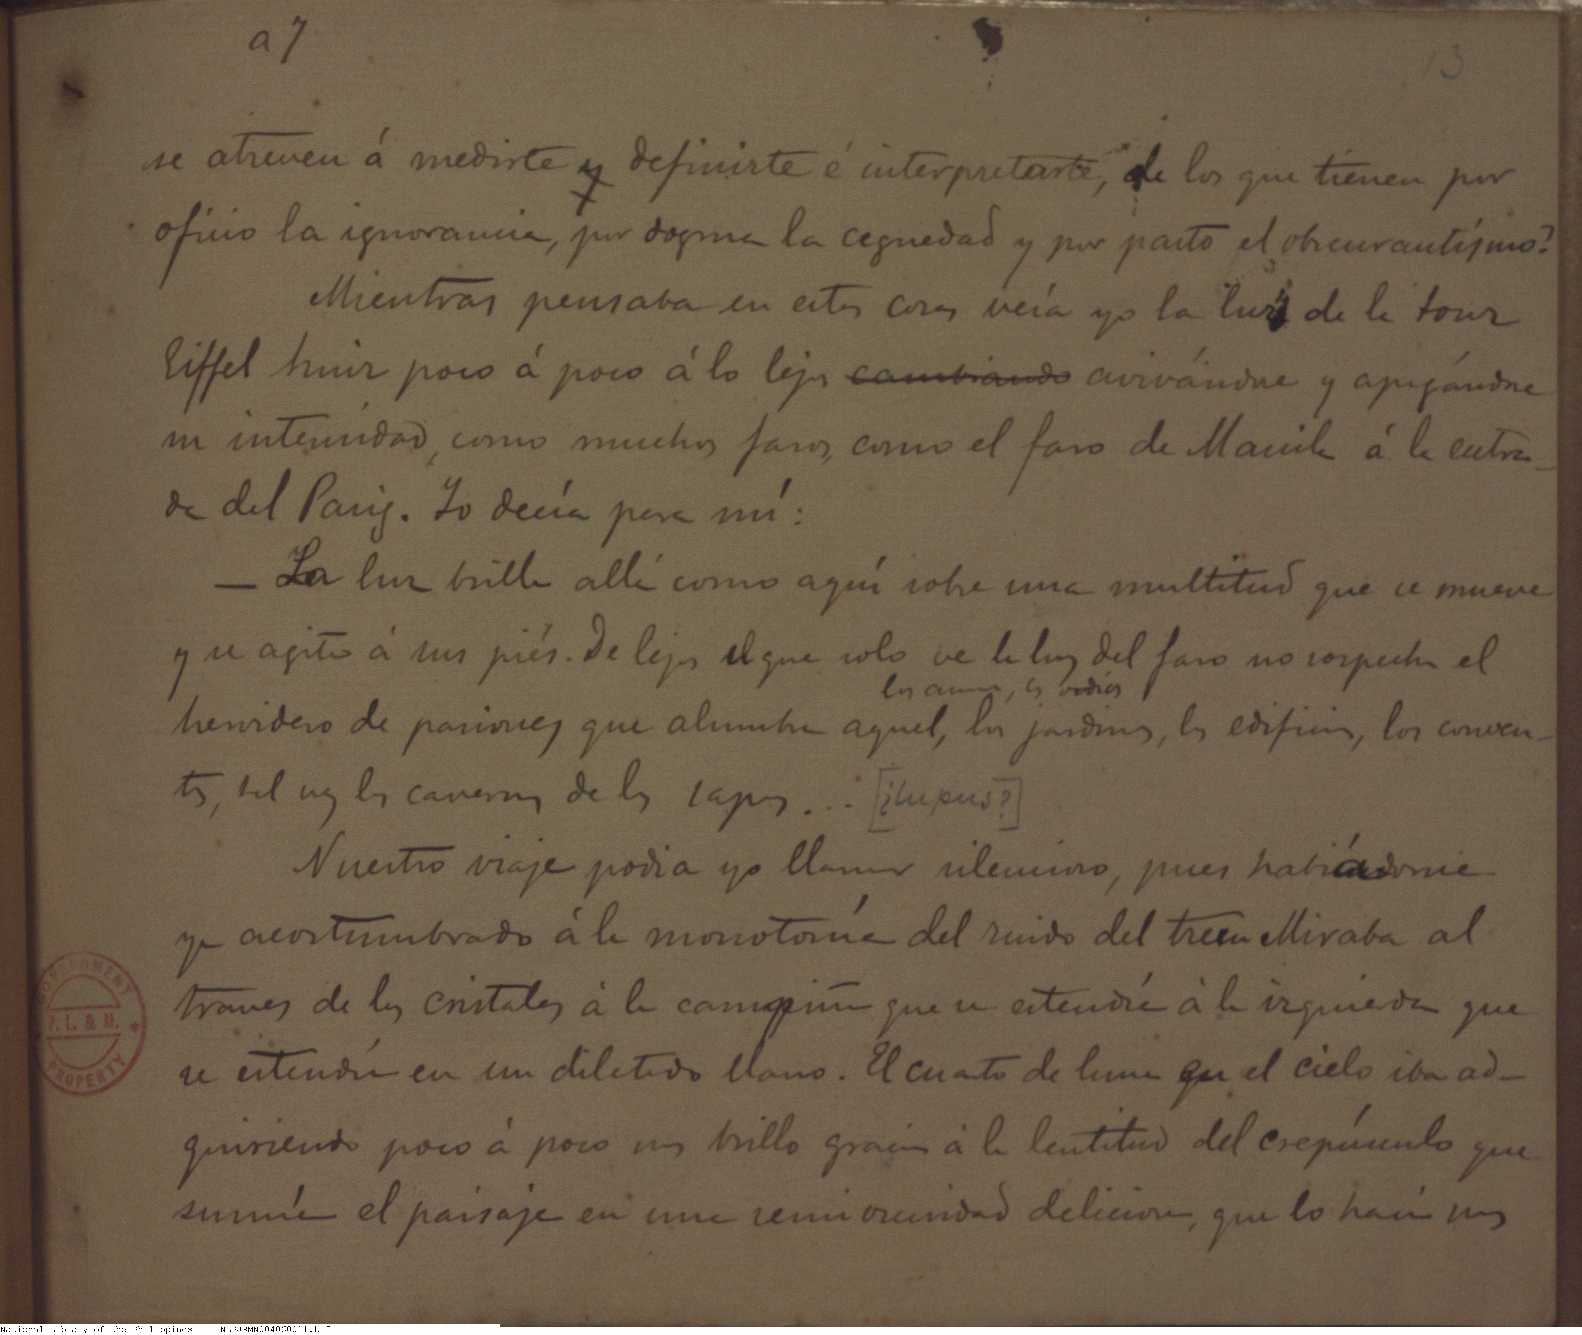 a7
13
se atreven á medirte y definirte é interpretarte, de los que tienen por
oficio la ignorancia, por dogma la ceguedad y por pacto el obscurantismo?
Mientras pensaba en estas cosas veía yo la luz de la tour
Eiffel huir poco á poco á lo lejos cambiando avivándose y apagándose
su intensidad, como muchos faros, como el faro de Manila á la entra-
da del Pasig. Yo decía para mí:
— La luz brilla allí como aquí sobre una multitud que se mueve
y se agita á sus piés. De lejos el que solo ve la luz del faro no sospecha el
los amores, los odios
hervidero de pasiones que alumbra aquel, los jardines, los edificios, los conven-
tos, tal vez las cavernas de los sapos... [¿lupus?]
Nuestro viaje podia yo llamar silencioso, pues habiéndome
ya acostumbrado á la monotonía del ruido del tren Miraba al
traves de los cristales á la campiña que se estendía á la izquierda que
se estendía en un dilatado llano. El cuarto de luna en el cielo iba ad-
quiriendo poco á poco mas brillo gracias á la lentitud del crepúsculo que
sumía el paisaje en una semioscuridad deliciosa, que lo hacía mas
GOVERNMENT
P. L. & M.
PROPERTY
National Library of the Philippines